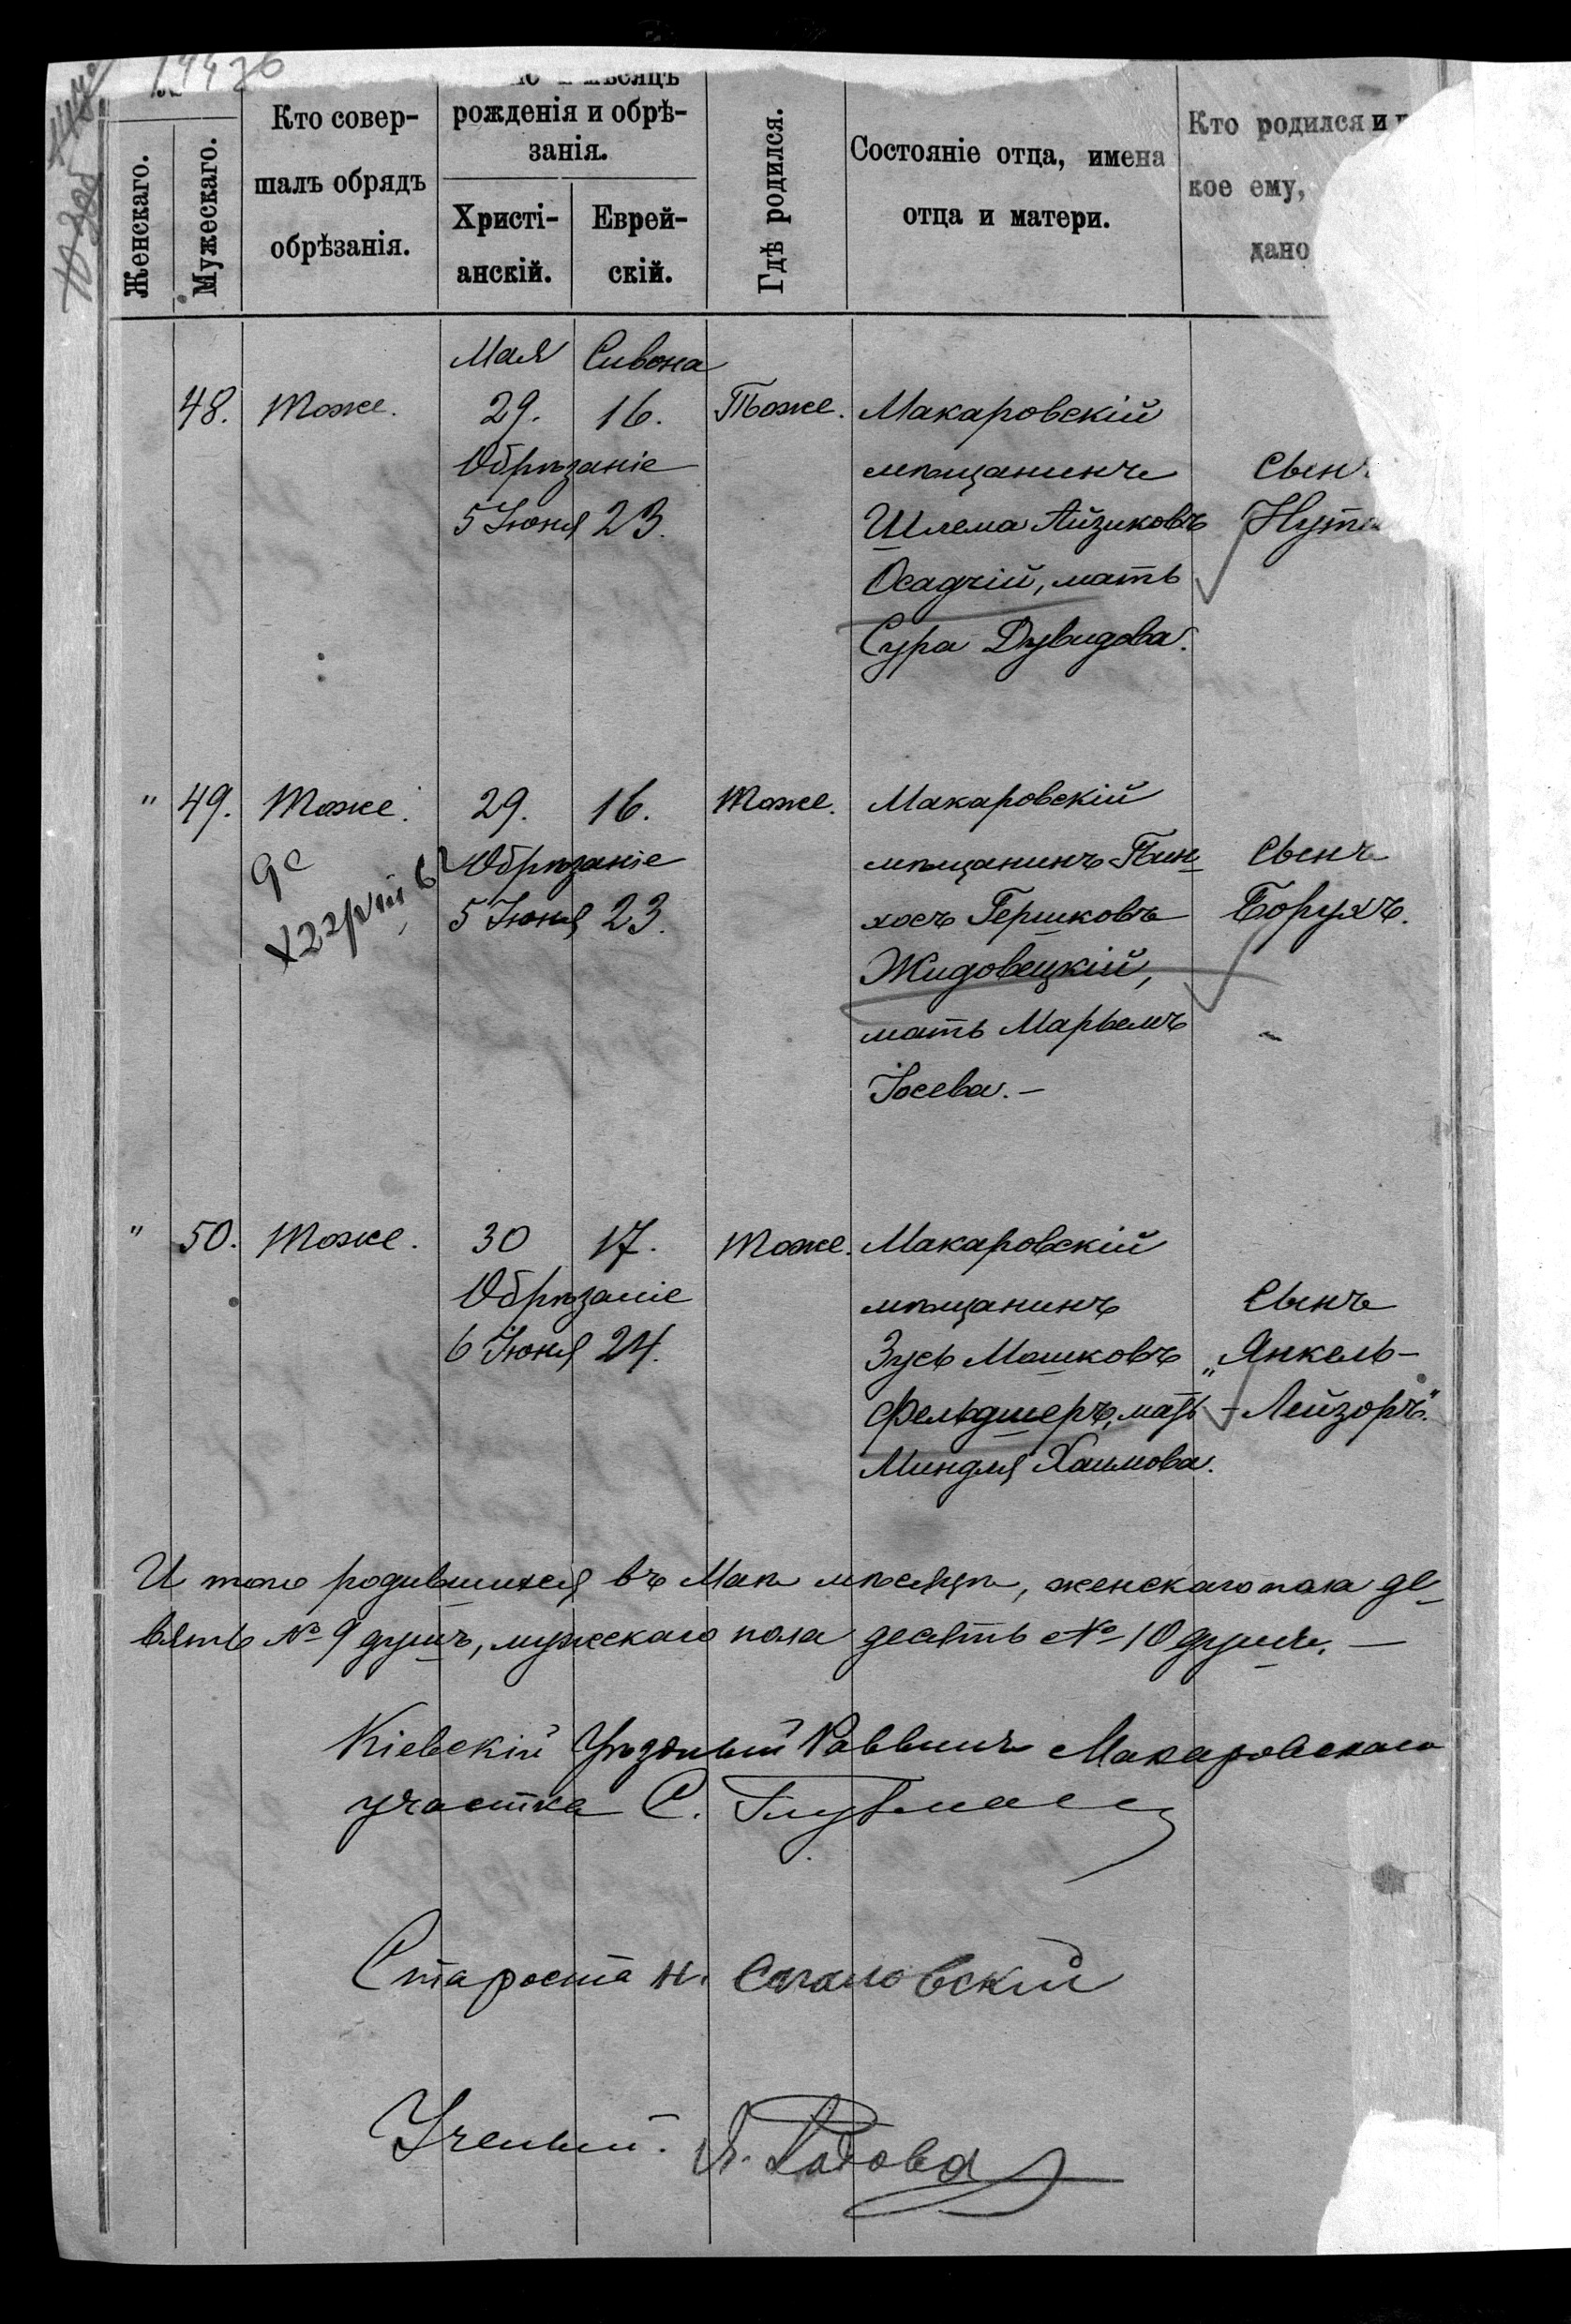 19426
Женскаго.
Мужескаго.
Кто совер-
шалъ обрядъ
обрѣзанія.
мѣсяцъ
рожденія и обрѣ-
занія.
Христі-
анскій.
Еврей-
скій.
Гдѣ родился.
Состояніе отца, имена
отца и матери.
Кто родился и
кое ему,
дано
Мая Сивона
48. Тоже. 29. 16. Тоже. Макаровскій
Обрѣзаніе мѣщанинъ Сынъ
5 Іюня 23. Шлема Айзиковъ
Осадчій, мать
Сура Дувидова.
" 49. Тоже. 29. 16. Тоже. Макаровскій
Обрѣзаніе мѣщанинъ Пин- Сынъ
5 Іюня 23. хосъ Гершковъ Борухъ.
Жидовецкій,
мать Марьемъ
Іосева. —
" 50. Тоже. 30 17. Тоже. Макаровскій
Обрѣзаніе мѣщанинъ Сынъ
6 Іюня 24. Зусь Мошковъ „Янкель-
Фельдшеръ, мать - Лейзоръ".
Миндля Хаимова.
И того родившихся въ Маѣ мѣсяцѣ, женскаго пола де-
вять № 9 душъ, мужескаго пола десять № 10 душъ. —
Кіевскій Уѣздный Раввинъ Макаровскаго
участка С.
Староста Н.
Ученый.